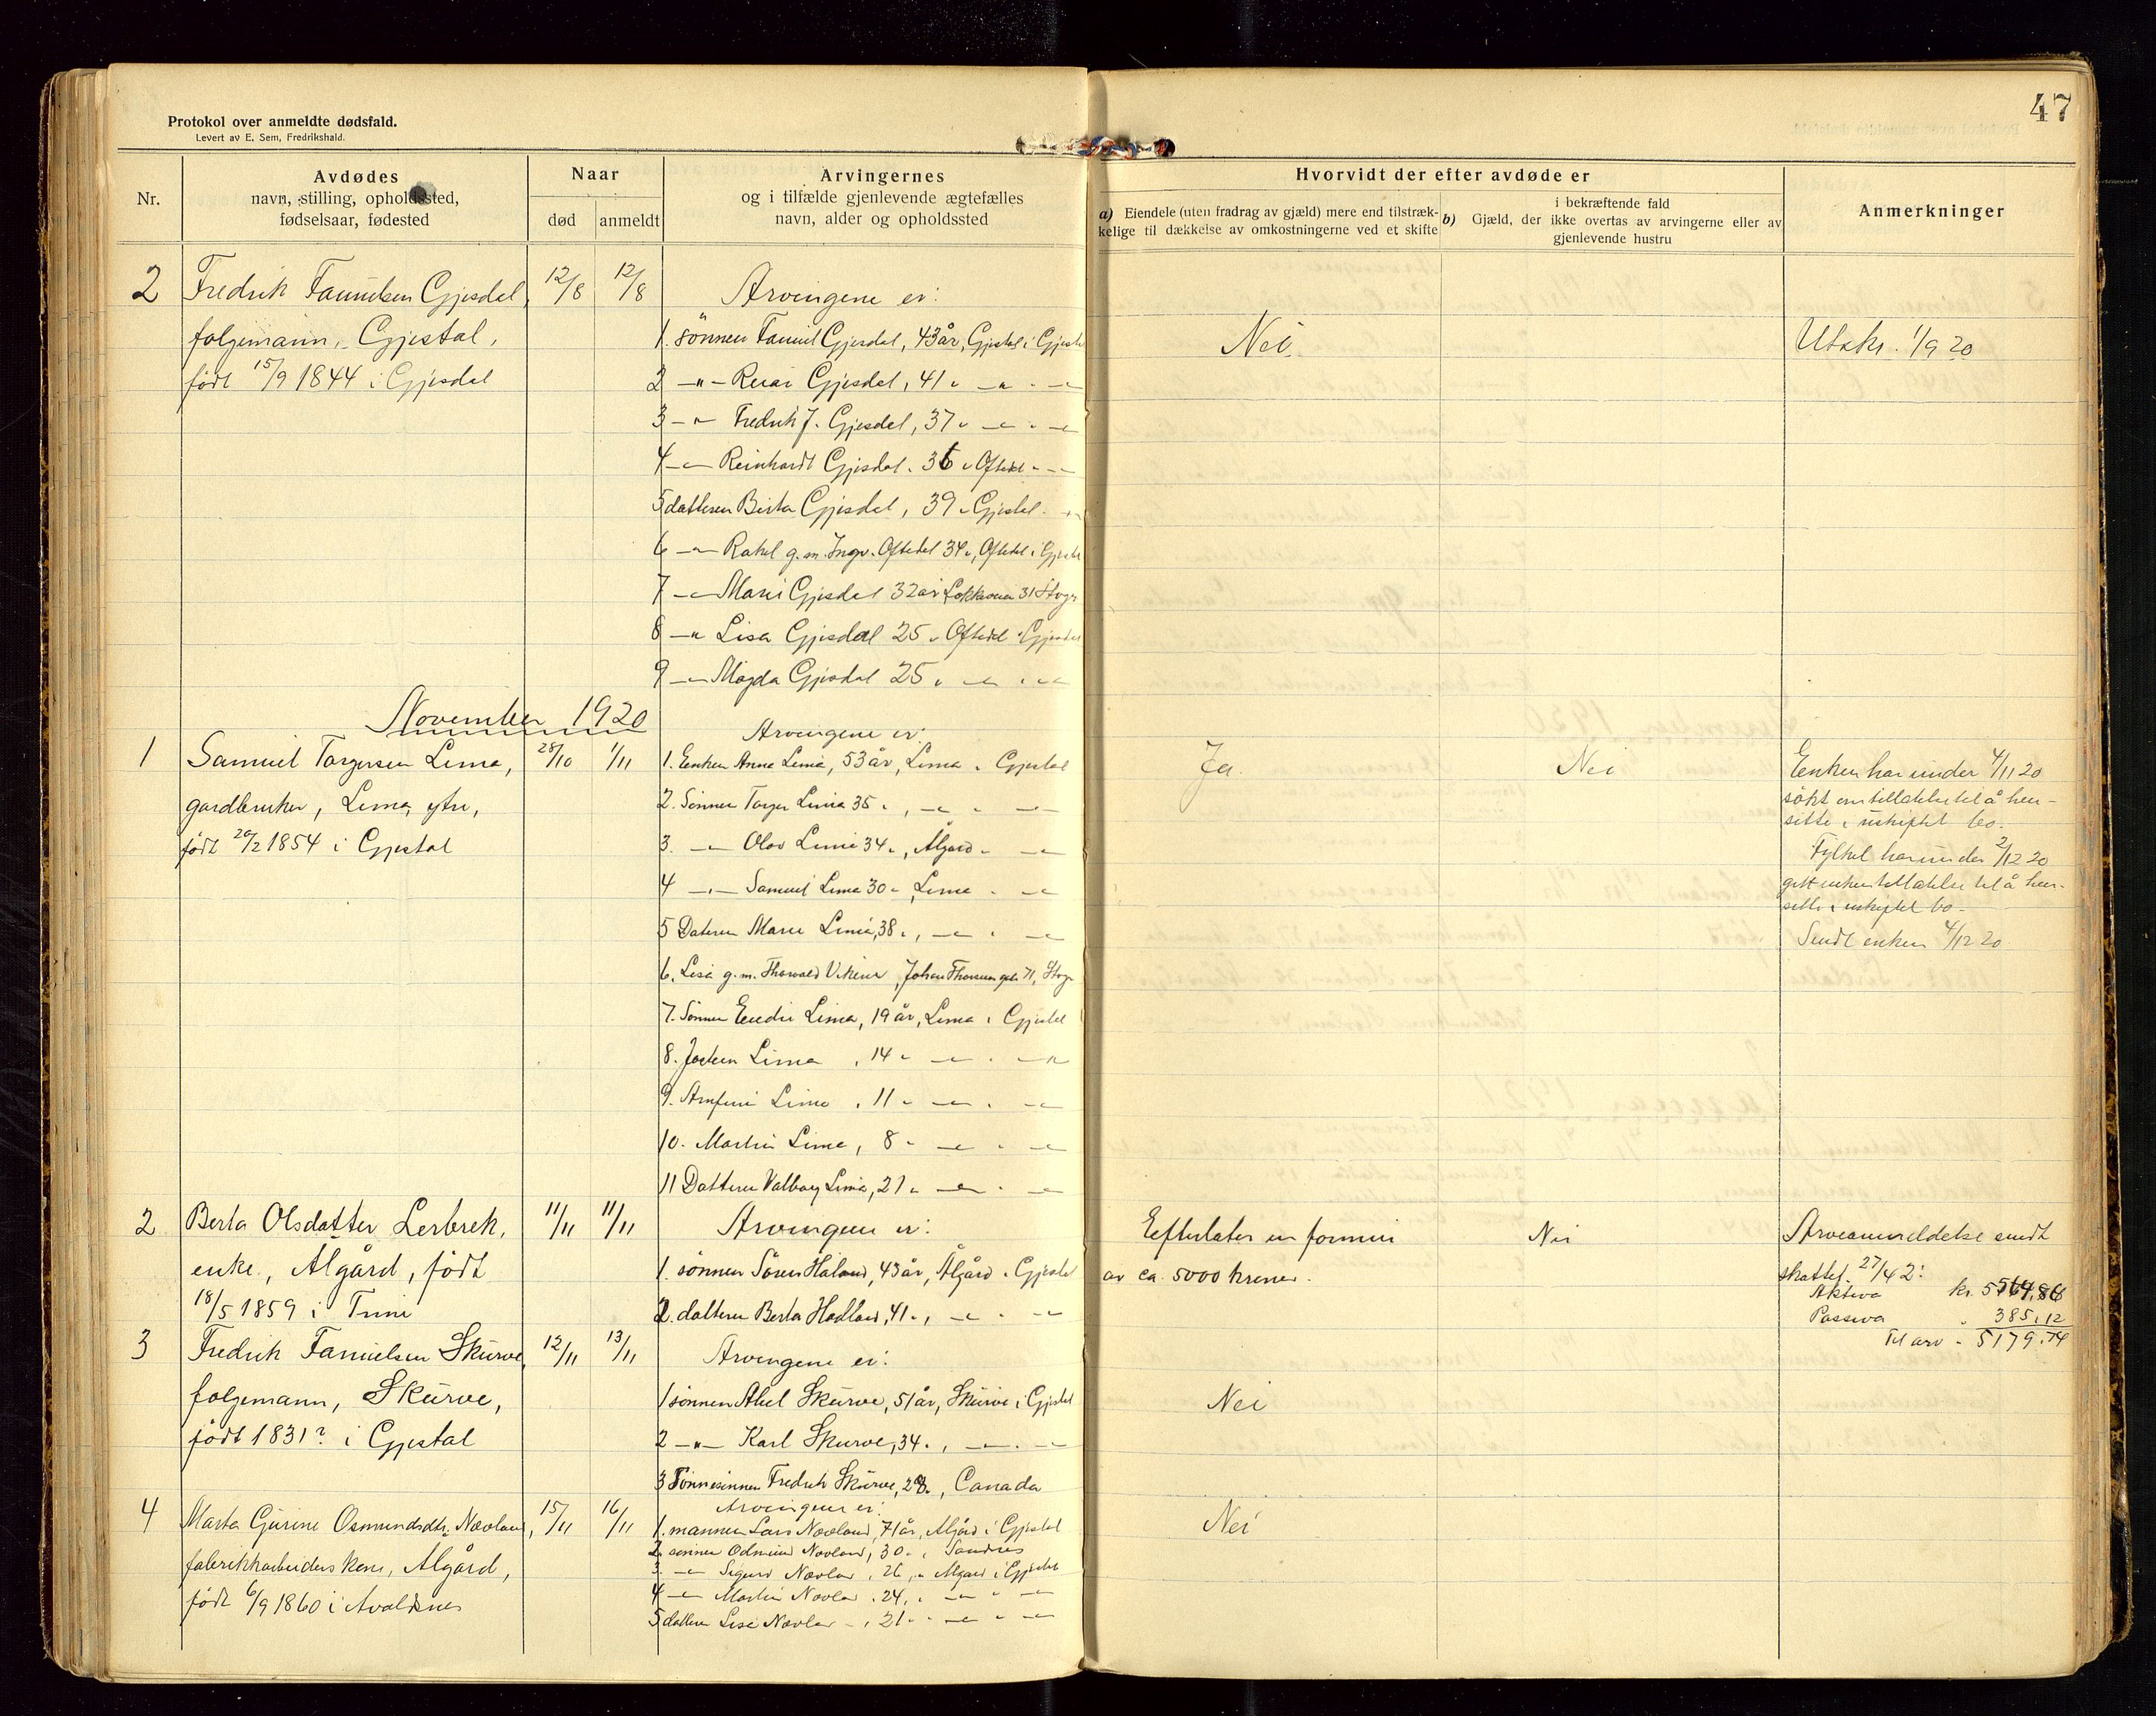 Protokol over anmeldte dødsfald.
Levert av E. Sem, Fredrikshald.
47
Nr.
Avdødes
navn, stilling, opholdssted,
fødselsaar, fødested
Naar
død
anmeldt
Arvingernes
og i tilfælde gjenlevende ægtefælles
navn, alder og opholdssted
Hvorvidt der efter avdøde er
a) Eiendele (uten fradrag av gjæld) mere end tilstræk-
kelige til dækkelse av omkostningerne ved et skifte
i bekræftende fald
b) Gjæld, der ikke overtas av arvingerne eller av
gjenlevende hustru
Anmerkninger
2 Fredrik Gjesdal, 12/8 12/8
folgemann, Gjestal,
født 15/9 1844 i Gjesdal
Arvingene er:
1. sönnen Gjesdal, 43 år, Gjestal i
2 -"- Gjesdal, 41 " -"- " -"-
3 -"- Fredrik J. Gjesdal, 37 " -"- " -"-
4 -"- Reinhardt Gjesdal, 36 " Oftedal " -"-
5 datteren Berta Gjesdal, 39 " Gjestal
6 -"- Rakel g.m. Ingv. Oftedal 34 ", Oftedal i
7 -"- Marie Gjesdal 32 år 31
8 -"- Lisa Gjesdal 25 " Oftedal i
9 -"- Magda Gjesdal 25 " -"- " -"-
Nei.
Utskr. 1/9 20
November 1920
1 Samuel Torgersen Lima, 28/10 1/11
gardbruker, Lima, ytre,
født 20/2 1854 i Gjestal
Arvingene er:
1. Enken Anna Lima, 53 år, Lima i Gjestal
2. Sönnen Torger Lima 35 " , -"- " -"-
3. -"- Olav Lima 34 " , Ålgård " -"-
4 -"- Samuel Lima 30 " , Lima " -"-
5 Marie Lima, 38 " , -"- " -"-
6. Lisa g.m. Thorvald 71,
7. Sönnen Lima, 19 år, Lima i Gjestal
8. Lima , 14 " -"- " -"-
9. Lima , 11 " -"- " -"-
10. Martin Lima, 8 " -"- " -"-
11 Datteren Valborg Lima, 21 " -"- " -"-
Ja.
Nei
Enken har under 4/11 20
sökt om tillatelse til å hen-
sitte i uskiftet bo.
Fylket har under 2/12 20
gitt enken tillatelse til å hen-
sitte i uskiftet bo.
Sendt enken 4/12 20
2 Berta Olsdatter Lerbrek, 11/11 11/11
enke, Ålgård, født
18/5 1859 i Time
Arvingene er:
1. sönnen Sören Håland, 43 år, Ålgård i Gjestal
2. datteren Berta 41 " , -"- " -"-
Eefterlater en formue
av ca. 5000 kroner.
Nei
Arveanmeldelse sendt
skattef. 27/4 2:
Aktiva kr. 5564,86
Passiva " 385,12
Til arv " 5179,74
3 Fredrik Skurve, 12/11 13/11
folgemann, Skurve,
født 1831? i Gjestal
Arvingene er:
1 sönnen Abel Skurve, 51 år, Skurve i Gjestal
2 -"- Karl Skurve, 34 " , -"- " -"-
3 Sönnesönnen Fredrik Skurve, 28 " , Canada
Nei
4 Marta Gurine Osmundsdtr. Nævland, 15/11 16/11
fabrikkarbeiders kone, Ålgård,
født 6/9 1860 i Avaldsnes
Arvingene er:
1. mannen Lars Nævland, 71 år, Ålgård i Gjestal
2. sönnen Nævland, 30 " , Sandnes
3. -"- Sigurd , 26 " , Ålgård i Gjestal
4 -"- Martin , 24 " , -"- " -"-
5 datteren Lise , 21 " -"- " -"-
Nei